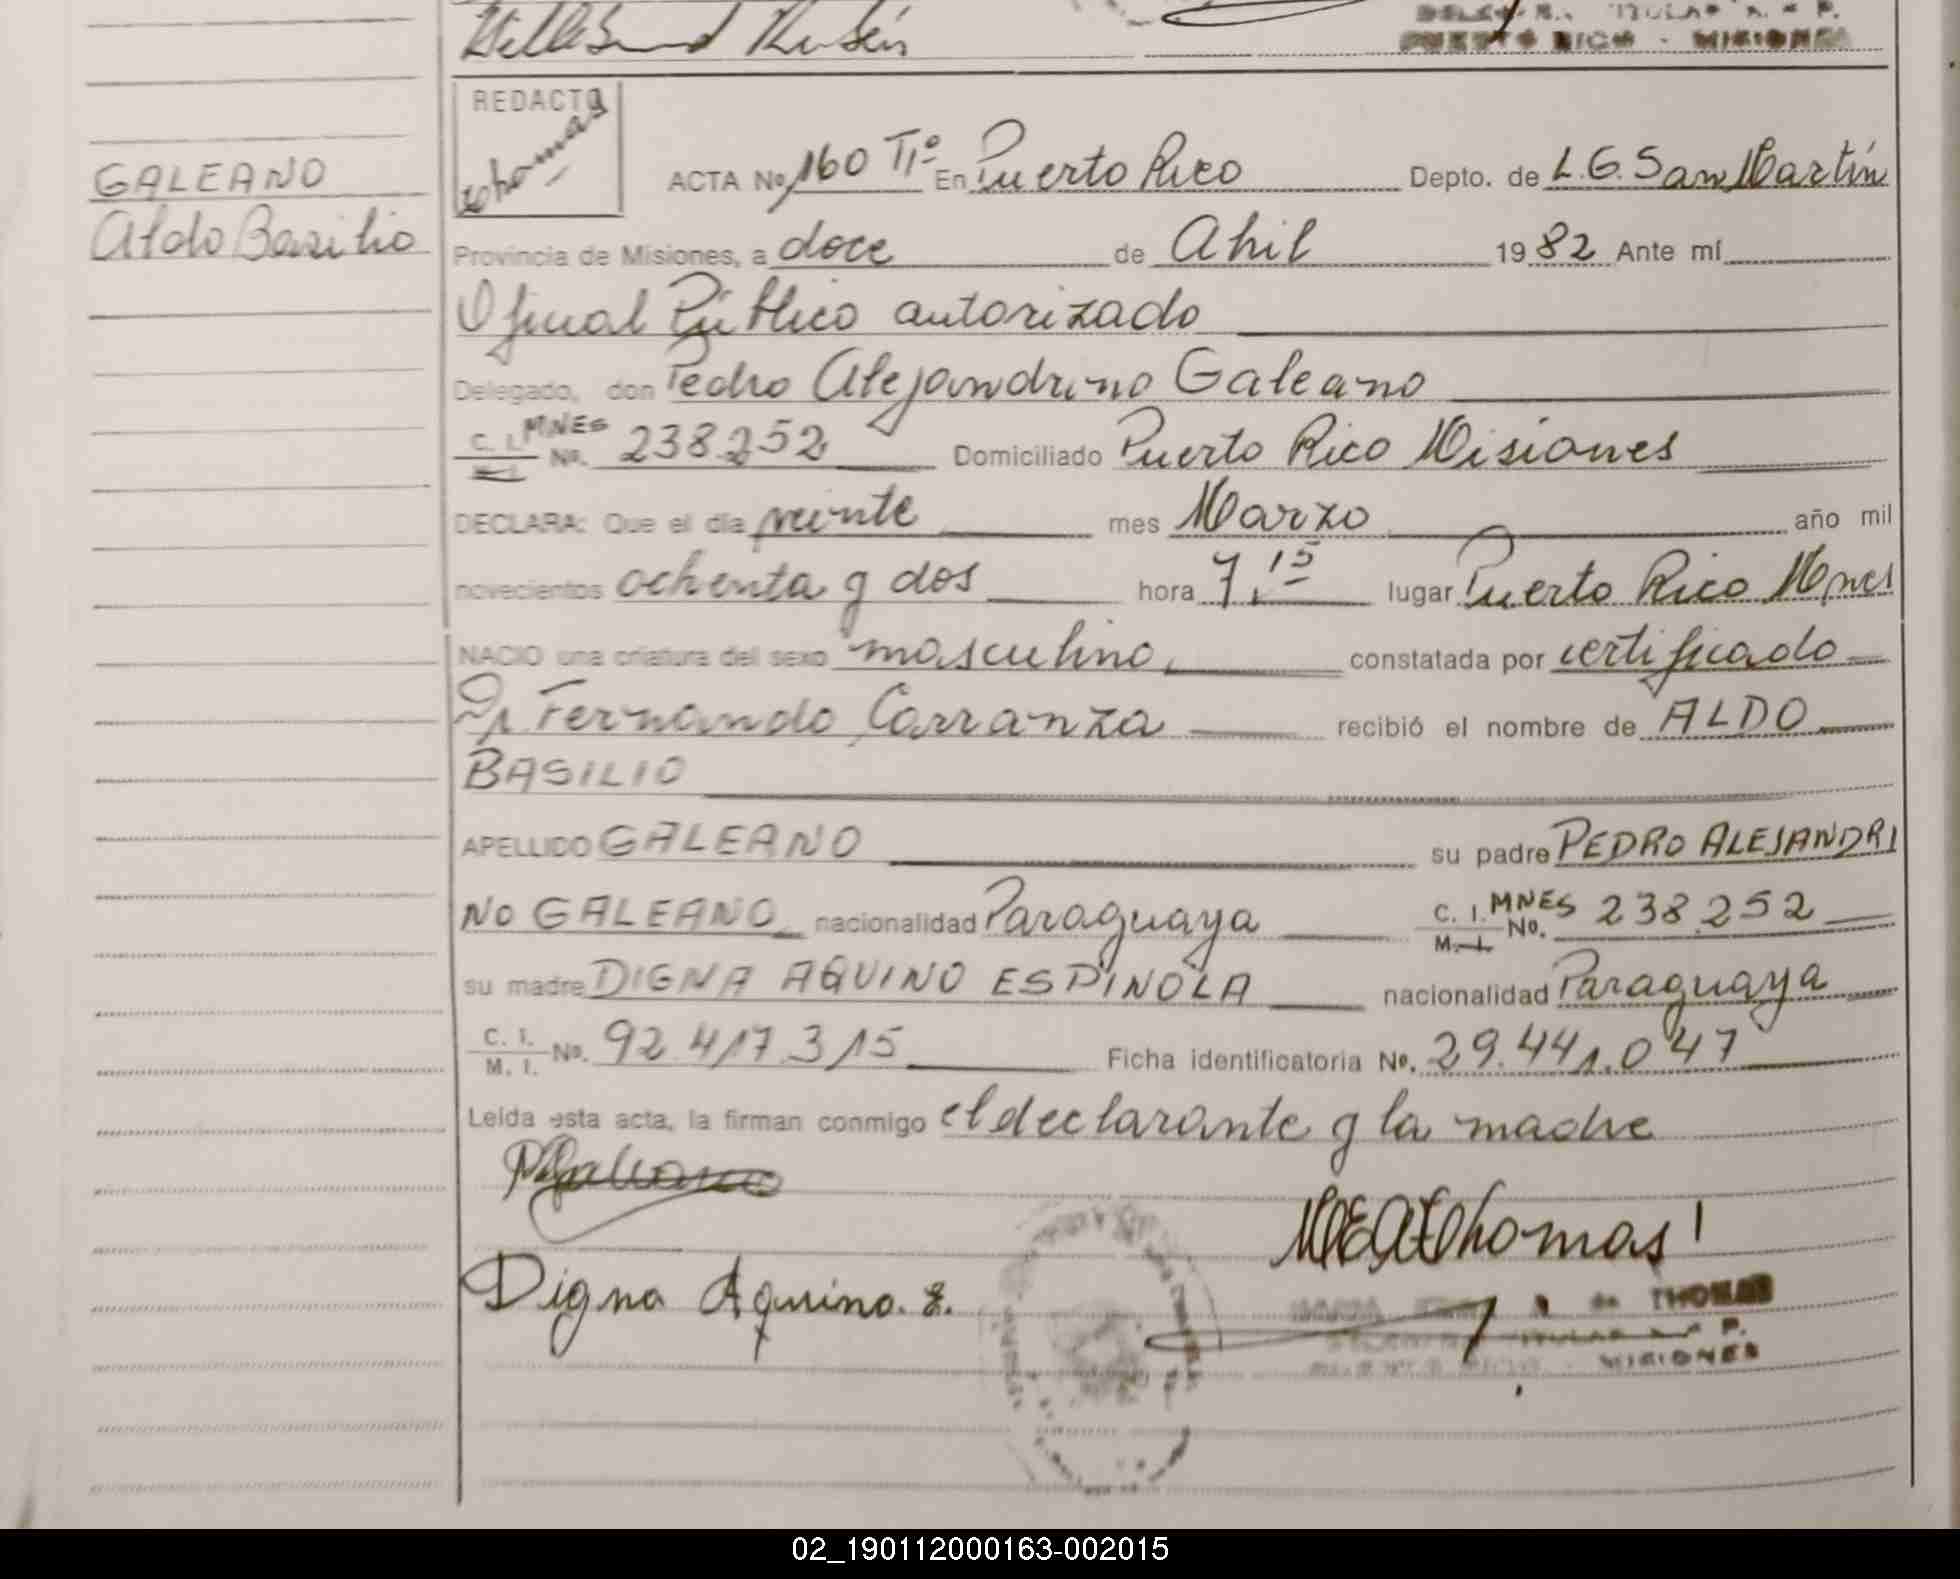 Hillebrand Rubén
PUERTO RICO - MISIONES
REDACTO
Thomas
GALEANO
Aldo Basilio
ACTA No 160 Tº En Puerto Rico Depto. de L.G. San Martín
Provincia de Misiones, a doce de Abril 1982 Ante mí
Oficial Público autorizado
Delegado, don Pedro Alejandrino Galeano
C. I. MNES No. 238.252 Domiciliado Puerto Rico Misiones
DECLARA: Que el día veinte mes Marzo año mil
novecientos ochenta y dos hora 7,15 lugar Puerto Rico Mnes
NACIO una criatura del sexo masculino, constatada por certificado
Dr Fernando Carranza recibió el nombre de ALDO
BASILIO
APELLIDO GALEANO su padre PEDRO ALEJANDRI
NO GALEANO nacionalidad Paraguaya C. I. MNES M. I. No. 238.252
su madre DIGNA AQUINO ESPINOLA nacionalidad Paraguaya
C. I. M. I. No. 92.417.315 Ficha identificatoria No. 29.441.047
Leída esta acta, la firman conmigo el declarante y la madre
Digna Aquino. E.
Thomas
de THOMAS
TITULAR
MISIONES
02_190112000163-002015